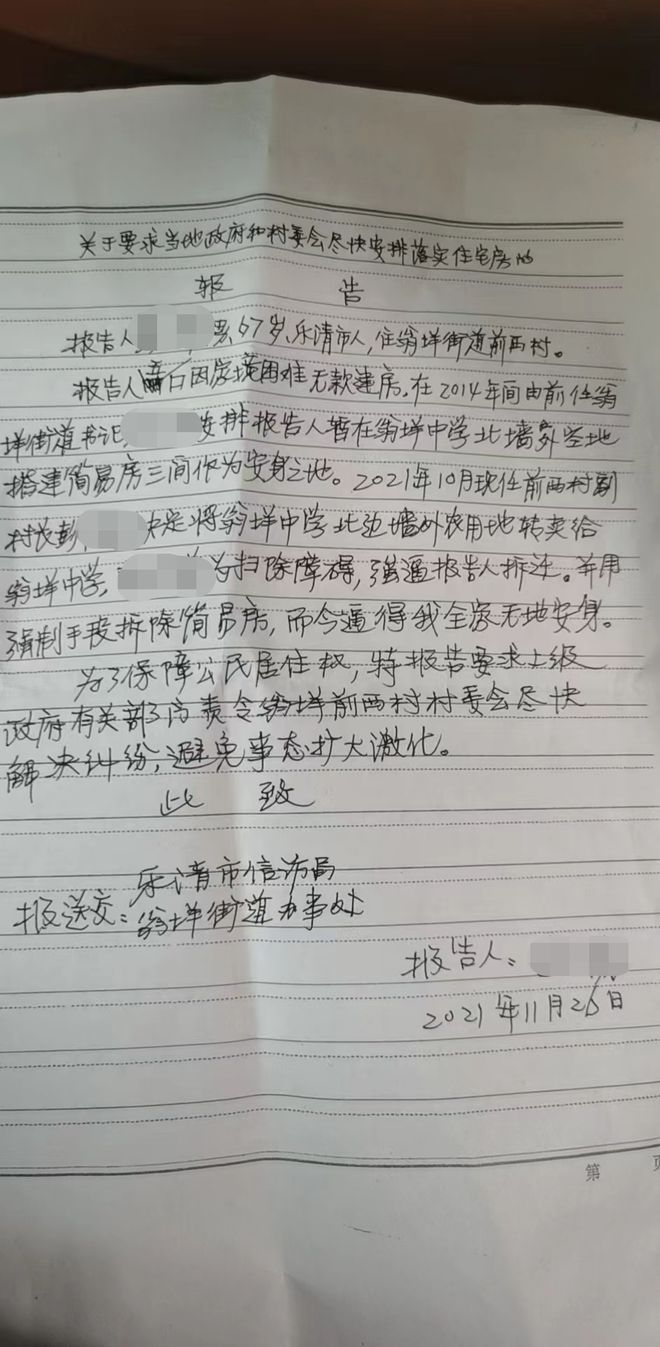 关于要求当地政府和村委会尽快安排落实住宅房的
报 告
报告人 男,67岁,乐清市人,住翁垟街道前西村。
报告人 因居境困难无款建房,在2014年间由前任翁
垟街道书记 安排报告人暂在翁垟中学北墙外空地
搭建简易房三间作为安身之地。2021年10月现任前西村副
村长彭 决定将翁垟中学北边墙外农用地转卖给
翁垟中学, 为扫除障碍,强逼报告人拆迁。并用
强制手段拆除简易房,而今逼得我全家无地安身。
为了保障公民居住权,特报告要求上级
政府有关部门责令翁垟前西村村委会尽快
解决纠纷,避免事态扩大激化。
此 致
乐清市信访局
报送交:翁垟街道办事处
报告人:
2021年11月26日
第 页